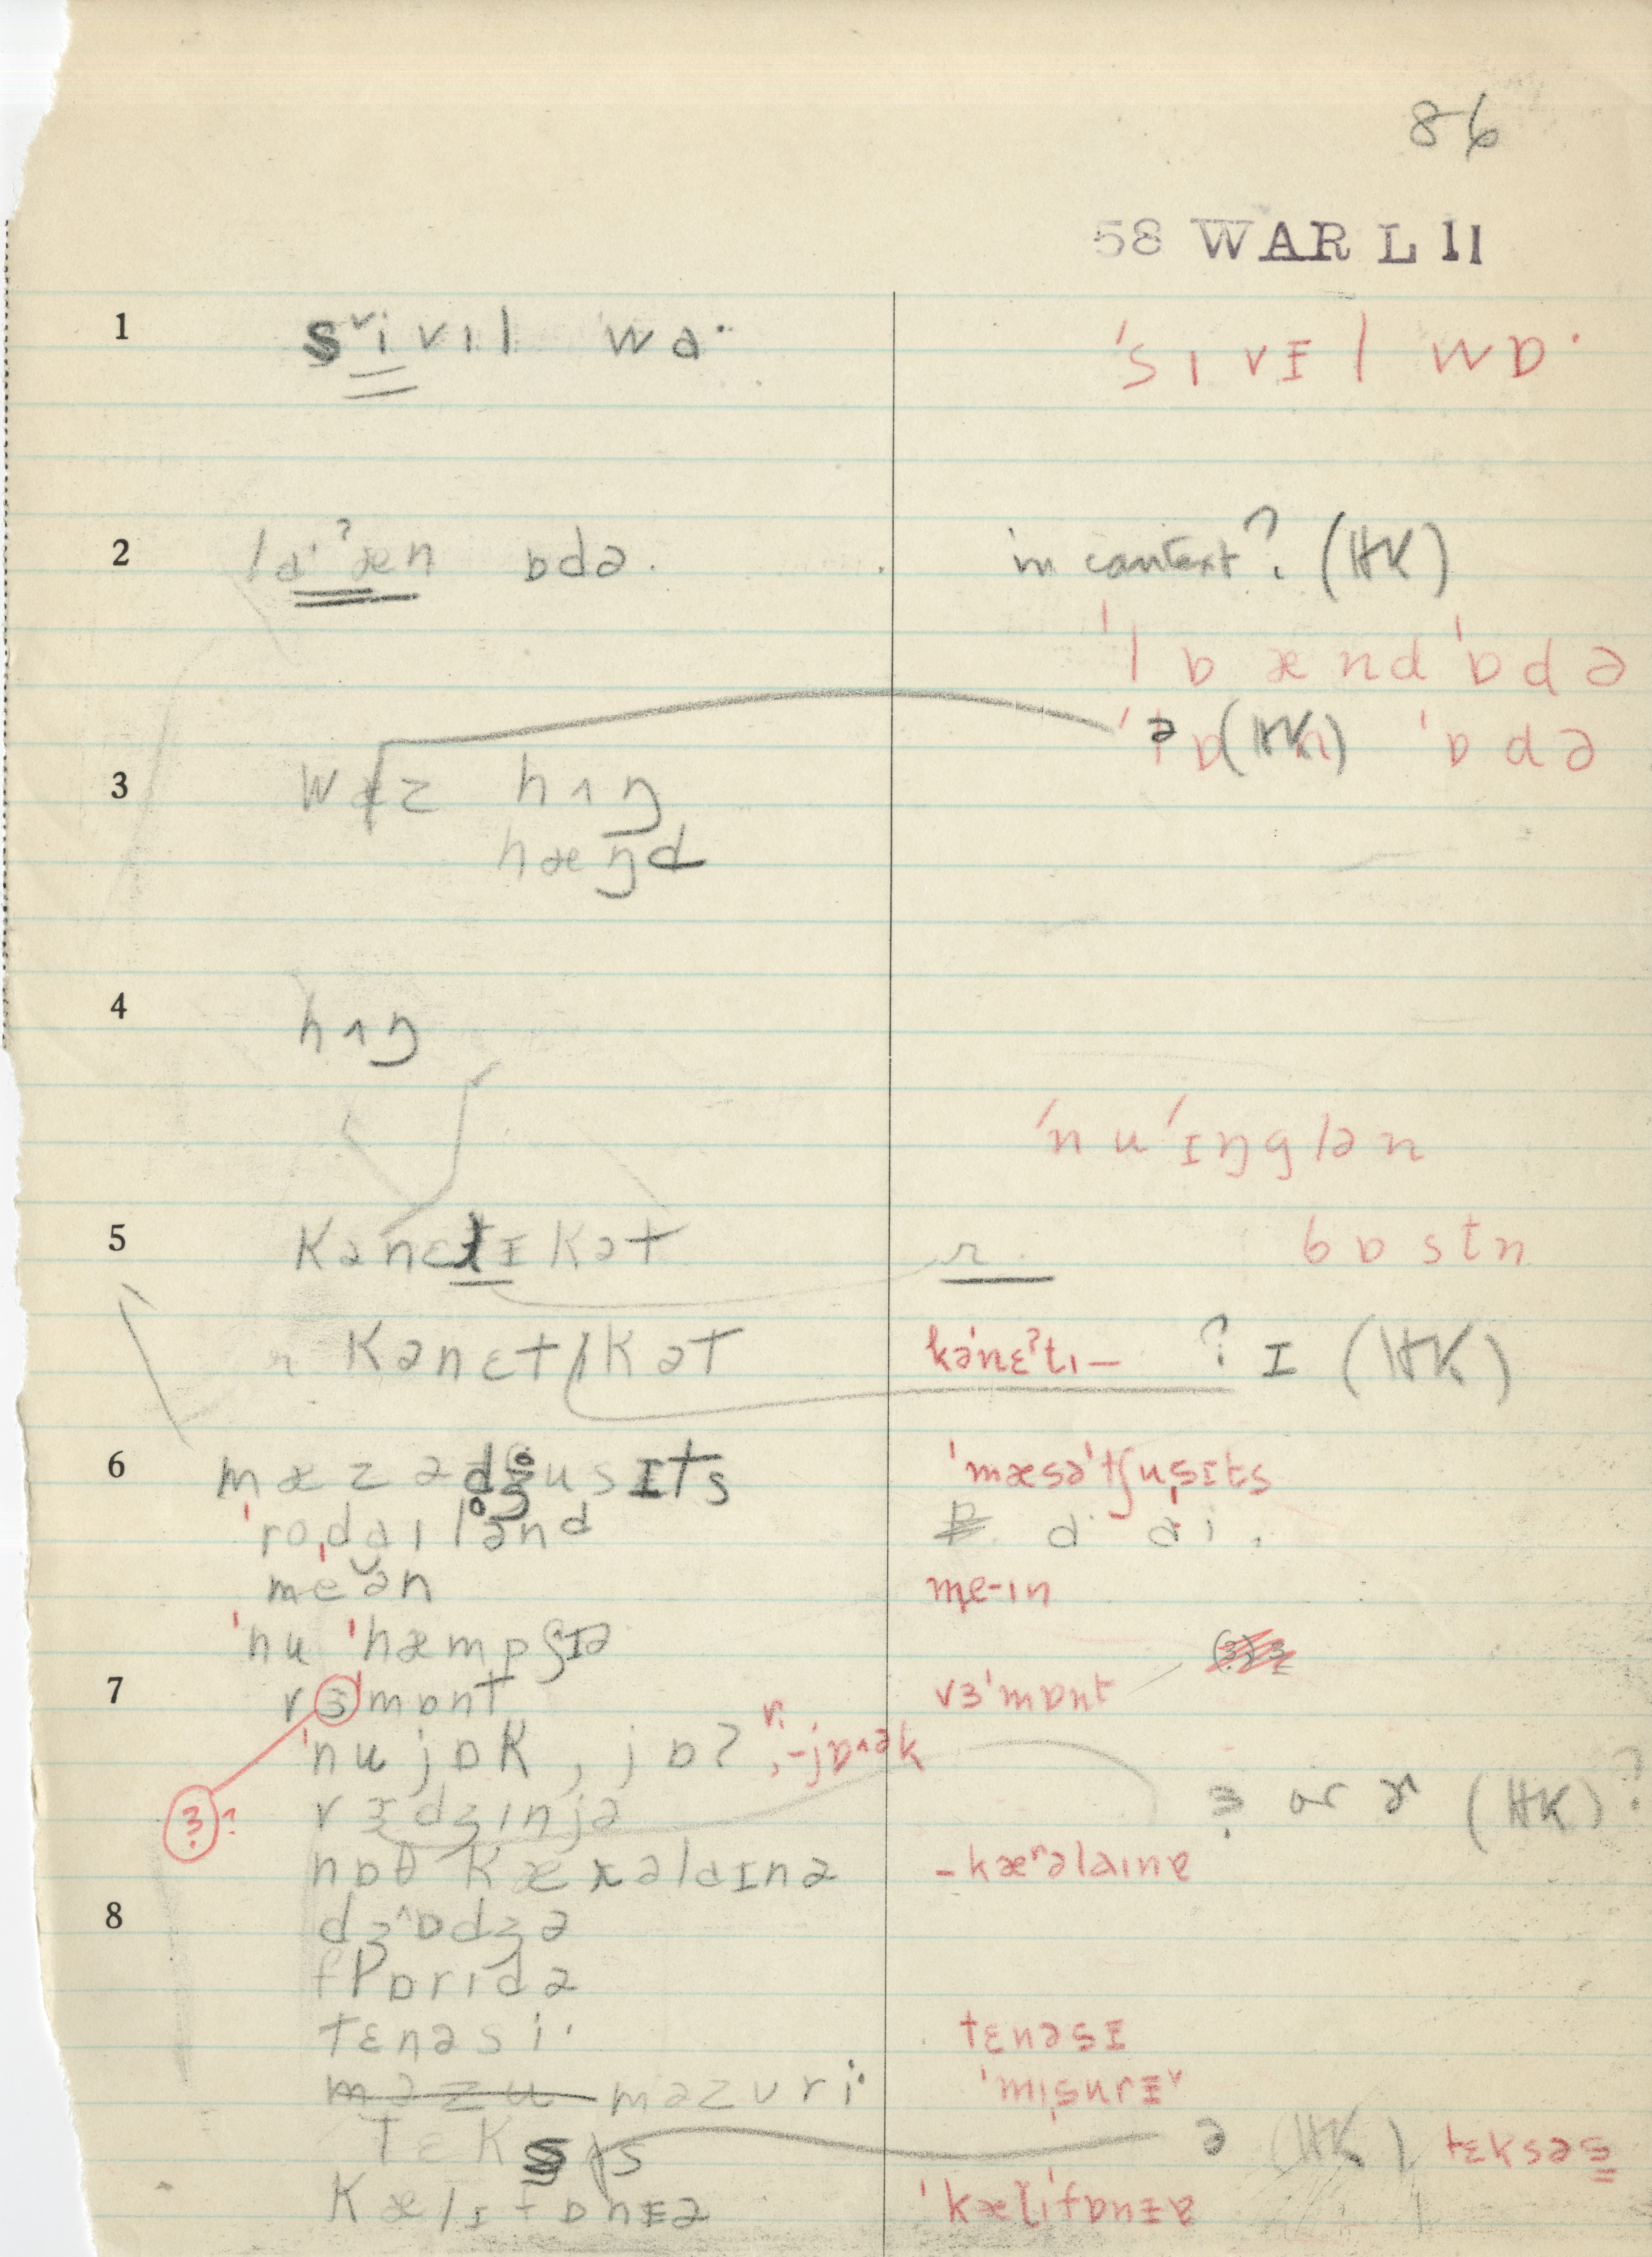 86
58 WAR L 11
1 sᵛivɪl wɑ· 'sɪvɪl wɒ·
2 lɑ·ˀæn ɒdə. in context? (HK)
'lɒænd'ɒdə
'ɒdə
ə (HK)
3 wɑz hʌŋ
hæŋd
4 hʌŋ
'nu'ɪŋglən
5 kanɛtɪkət r. bɒstn
kanɛtɪkət kə'nɛˀtɪ— ? ɪ (HK)
6 mæzəd̥ʒ̊usɪts 'mæsə'tʃuˌsɪts
'roˌdɑɪlənd
meən me-ɪn
'nu 'hæmpʃɪə
7 vɜ'mɒnt vɜ'mɒnt
'nujɒk, jɒʔ, -jɒʳək
ɜ? vɜdʒɪnjə ɜ or ɚ (HK)?
nɒθ kærəlɑɪnə -kæʳəlaɪnɐ
8 dʒ^ɒdʒə
flɒrɪdə
tɛnəsi· tɛnəsɪ
məzu məzuri· 'mɪˌsurɪᵛ
tɛksɪs ə (HK) tɛksəs
kælɪfɒnɪə 'kælɪ'fɒnɪɐ